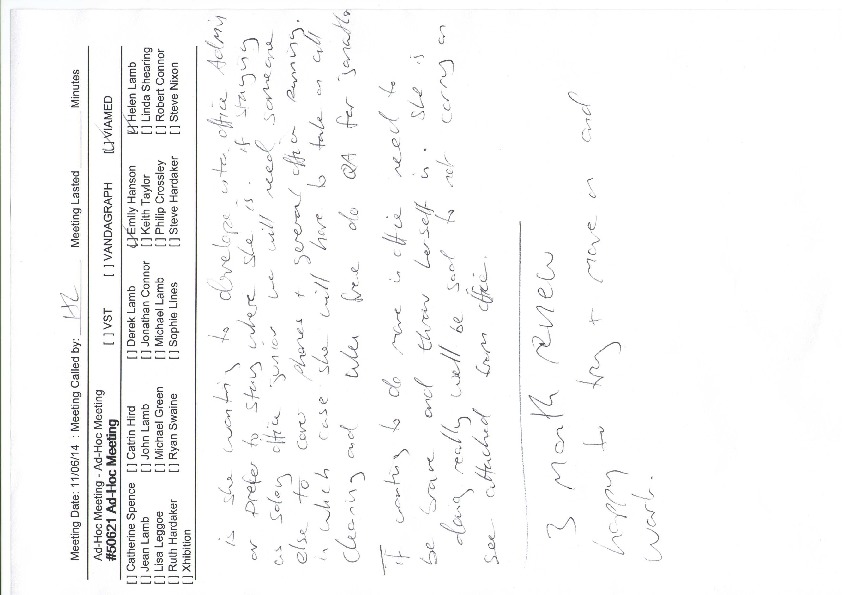 Meeting Date: 11/06/14 : Meeting Called by: HL Meeting Lasted Minutes
Ad-Hoc Meeting - Ad-Hoc Meeting
#50621 Ad-Hoc Meeting [ ] VST [ ] VANDAGRAPH [✓] VIAMED
[ ] Catherine Spence [ ] Catrin Hird [ ] Derek Lamb [✓] Emily Hanson [✓] Helen Lamb
[ ] Jean Lamb [ ] John Lamb [ ] Jonathan Connor [ ] Keith Taylor [ ] Linda Shearing
[ ] Lisa Leggoe [ ] Michael Green [ ] Michael Lamb [ ] Philip Crossley [ ] Robert Connor
[ ] Ruth Hardaker [ ] Ryan Swaine [ ] Sophie Lines [ ] Steve Hardaker [ ] Steve Nixon
[ ] Xhibition
is she wanting to develope into office Admin
or prefer to stay where she is. if staying
as office junior we will need someone
else to cover phones + general office running.
in which case she will have to take on all
cleaning and when free do QA for Jonathan
If wanting to do more in office need to
be brave and throw herself in. She is
doing really well be sad to not carry on
see attached from office.
3 Month renew
happy to try + move on and
work.